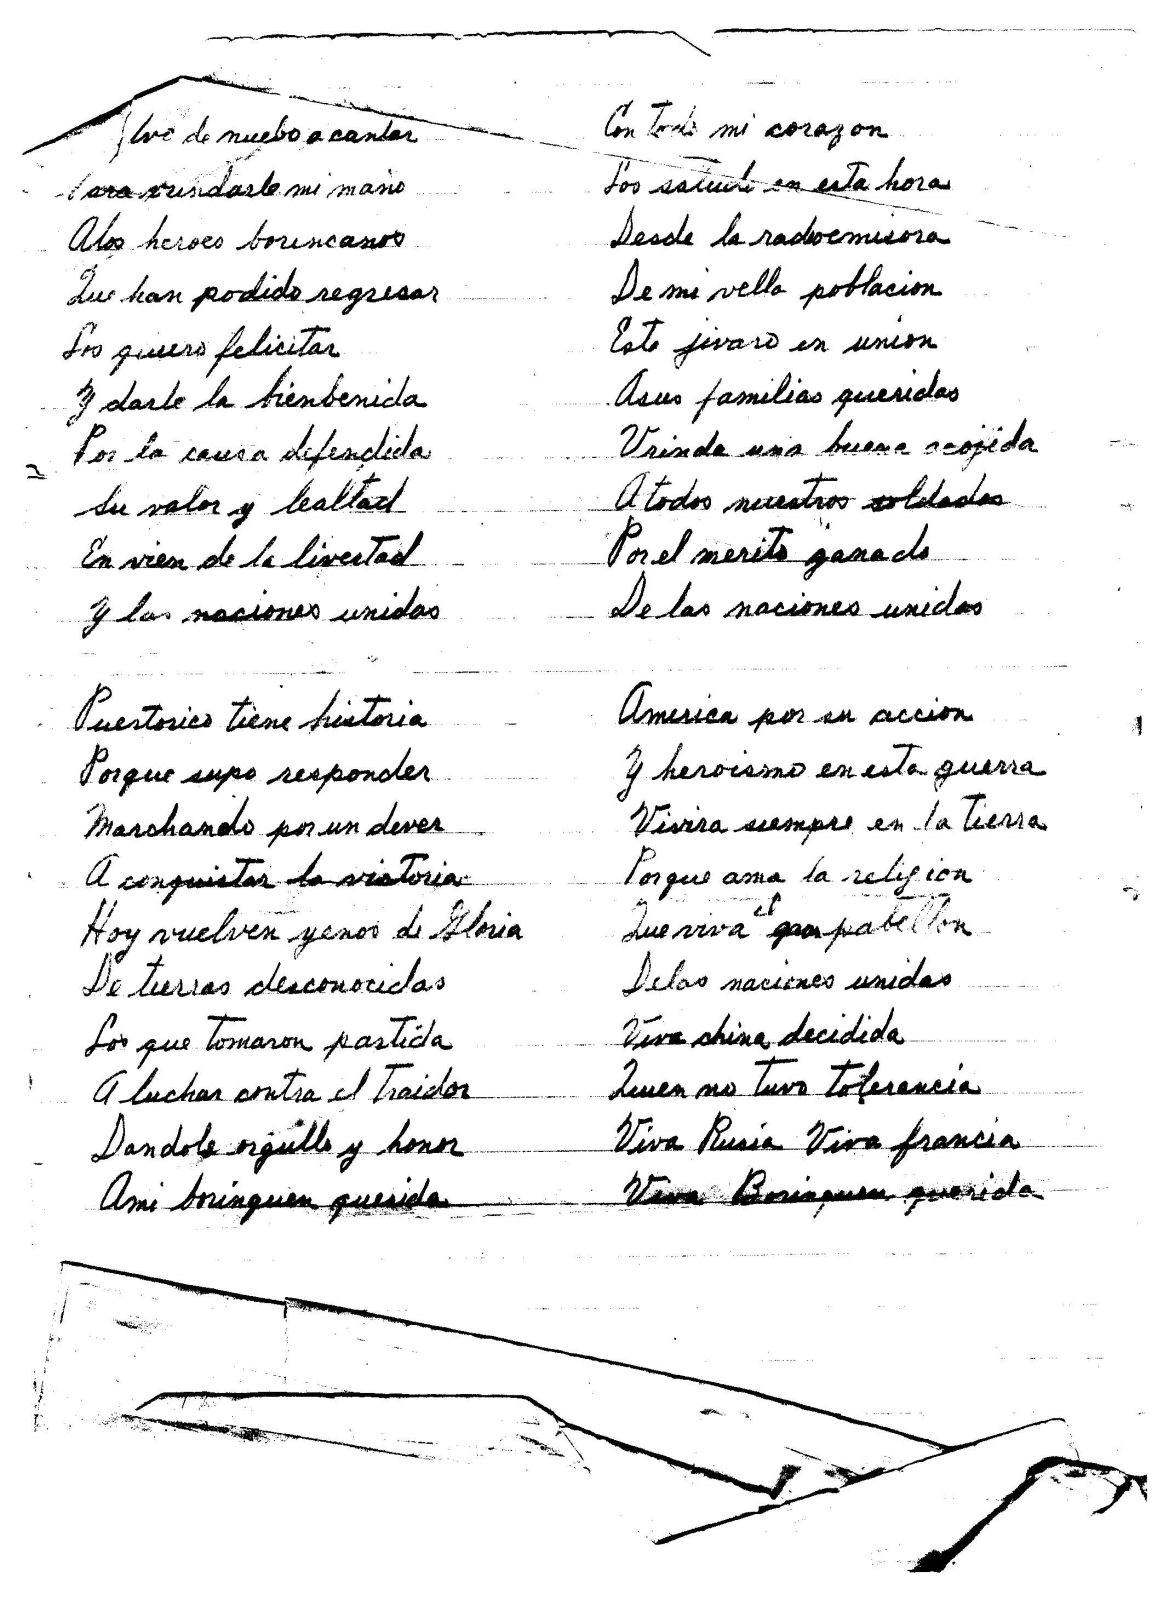 de nuebo a cantar
vrindarle mi mano
Alos heroes borincanos
Que han podido regresar
Los quiero felicitar
Y darle la bienbenida
Por la causa defendida
Su valor y lealtad
En vien de la livertad
Y las naciones unidas
Puertorico tiene historia
Porque supo responder
Marchando por un dever
A conquistar la victoria
Hoy vuelven yenos de Gloria
De tierras desconocidas
Los que tomaron partida
A luchar contra el traidor
Dandole orgullo y honor
Ami borinquen querida
Con todo mi corazon
Los saludo en esta hora
Desde la radioemisora
De mi vella poblacion
Este jivaro en union
Asus familias queridas
Vrinda una buena acojida
A todos nuestros soldados
Por el merito ganado
De las naciones unidas
America por su accion
Y heroismo en esta guerra
Vivira siempre en la tierra
Porque ama la religion
Que viva el gran pabellon
Delas naciones unidas
Viva china decidida
Quien no tuvo tolerancia
Viva Rusia Viva francia
Viva Borinquen querida